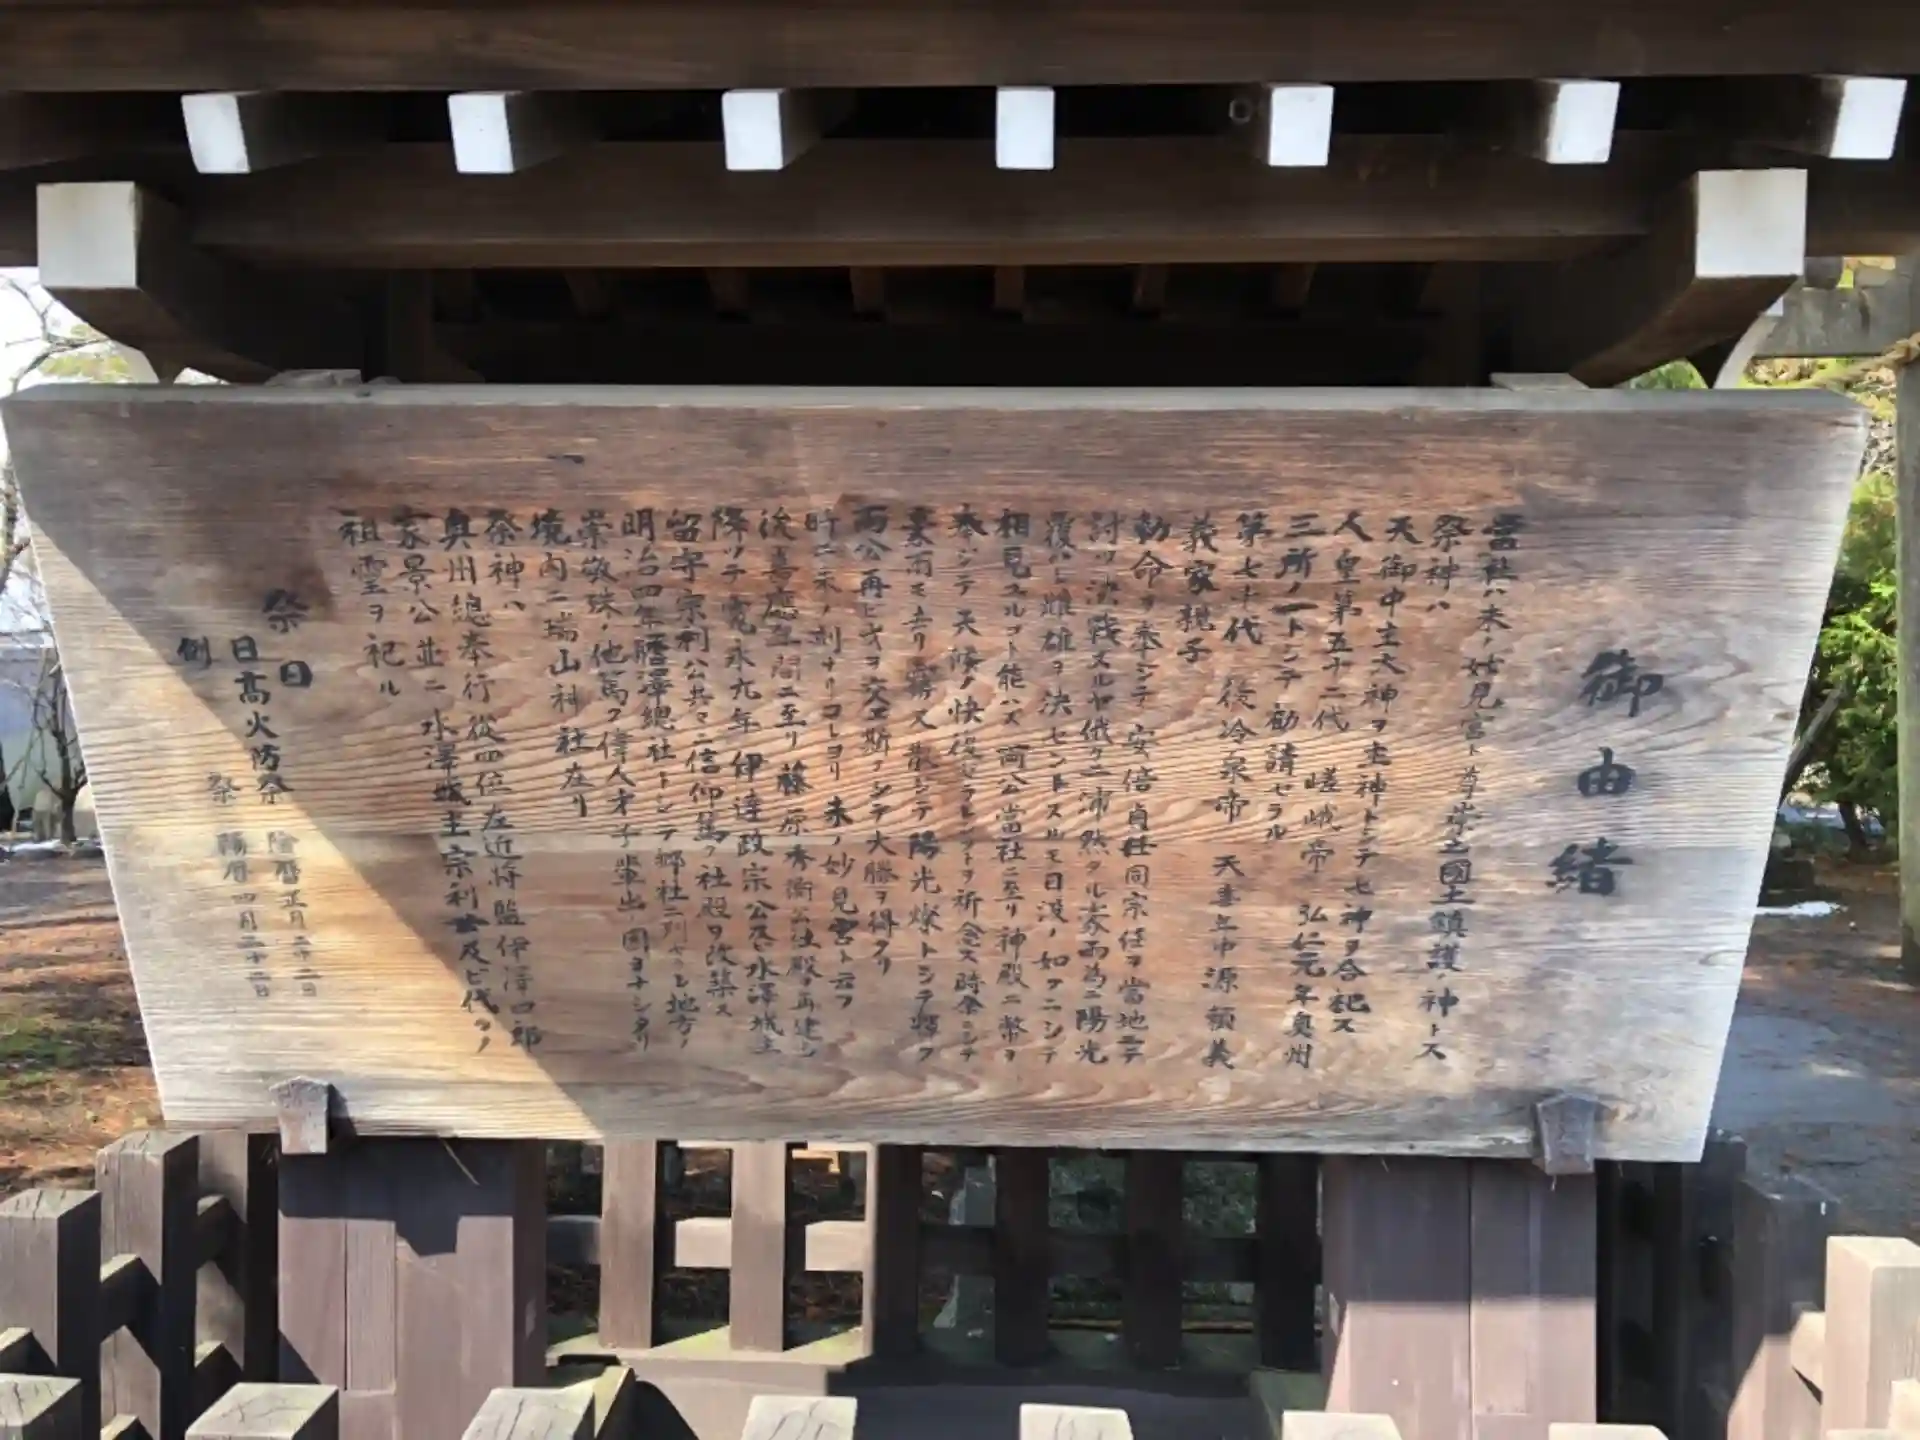 御由緒
當社ハ未ノ妙見宮ト尊崇之國土鎮護ノ神トス
祭神ハ
天御中主大神ヲ主神トシテ七神ヲ合祀ス
人皇第五十二代 嵯峨帝 弘仁元年奥州
三所ノ一トシテ勧請セラル
第七十代 後冷泉帝 天喜年中源頼義
義家親子
勅命ヲ奉シテ安倍貞任同宗任ヲ當地ニテ
討ツ決戦スルヤ俄カニ沛然タル豪雨為ニ陽光
覆ハレ雌雄ヲ決セントスルモ日没ノ如クニシテ
相見ユルコト能ハズ両公當社ニ至リ神殿ニ幣ヲ
奉ジテ天候ノ快復セラレンコトヲ祈念ス時余ニシテ
豪雨モ去リ霧又散シテ陽光燦トシテ輝ク
両公再ビ戈ヲ交エ斯クシテ大勝ヲ得タリ
時ニ未ノ刻ナリコレヨリ未ノ妙見宮ト云フ
後嘉應年間ニ至リ藤原秀衡公社殿ヲ再建シ
降ツテ寛永九年伊達政宗公及水澤城主
留守宗利公共々ニ信仰篤ク社殿ヲ改築ス
明治四年膽澤總社トシテ郷社ニ列セラレ地方ノ
崇敬殊ノ他篤ク偉人才子輩出ノ因ヲナシタリ
境内ニ瑞山神社在リ
祭神ハ
奥州總奉行從四位左近将監伊澤四郎
家景公並ニ水澤城主宗利公及ビ代々ノ
祖霊ヲ祀ル
祭日
日高火防祭 陰暦正月二十二日
例祭 陽暦四月二十二日